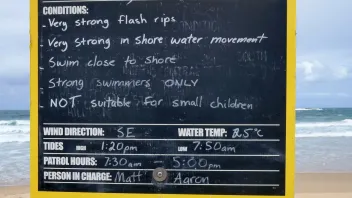 CONDITIONS:
- Very strong flash rips
- Very strong in shore water movement
- Swim close to shore
- Strong swimmers ONLY
- NOT suitable for small children
WIND DIRECTION: SE WATER TEMP: 25°C
TIDES HIGH 1:20pm LOW 7:50am
PATROL HOURS: 7:30am - 5:00pm
PERSON IN CHARGE: Matt Aaron